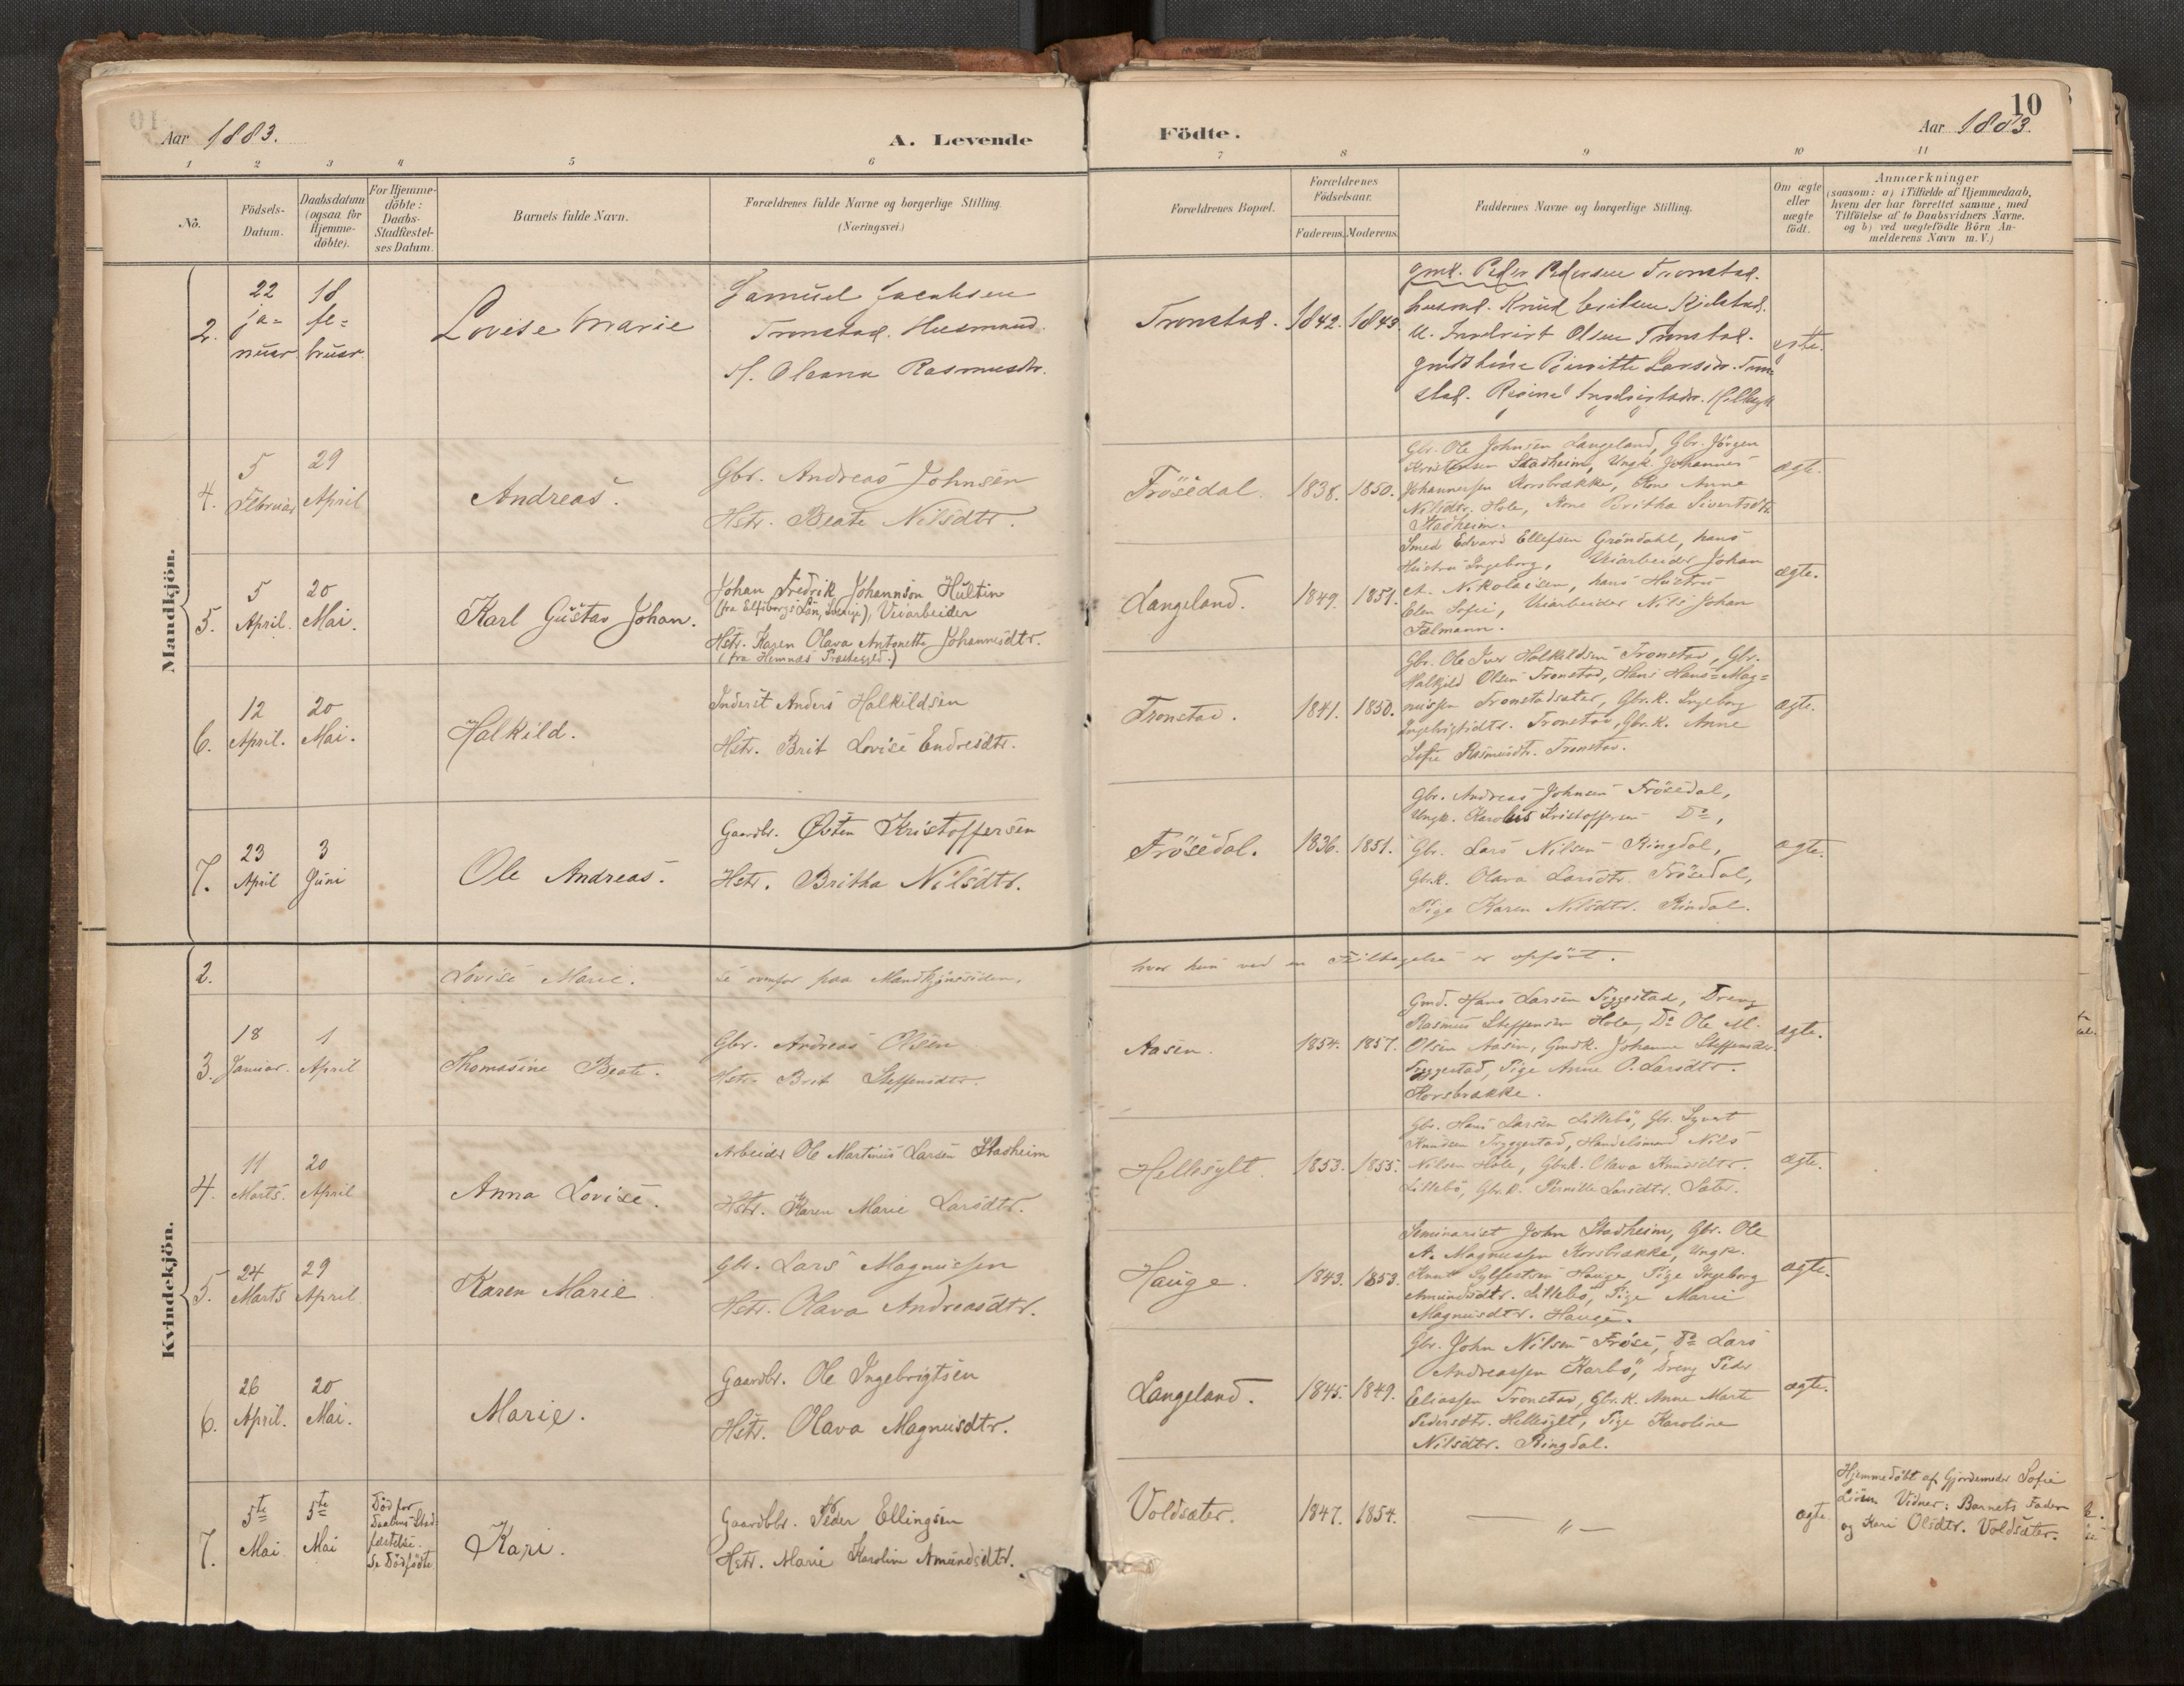 Aar 1883.
A. Levende
1 2 3 4 5 6
No.
Födsels-
Datum.
Daabsdatum
(ogsaa for
Hjemme-
döbte).
For Hjemme-
döbte:
Daabs-
Stadfestel-
ses Datum.
Barnets fulde Navn.
Forældrenes fulde Navne og borgerlige Stilling.
(Næringsvei.)
Mandkjön.
2.
22
ja-
nuar.
18
fe-
bruar.
Lovise Marie
Samuel Jacobsen
Tronstad. Husmand
H. Oleana Rasmusdtr.
4.
5
Februar
29
April
Andreas.
Gbr. Andreas Johnsen
Hstr. Beate Nilsdtr.
5.
5
April.
20
Mai.
Karl Gustav Johan.
Johan Fredrik Johannson Hultin
(fra Elfsborgs Län, Sverige), Veiarbeider
Hstr. Karen Olava Antonette Johannesdtr.
(fra Hemnæs Præstegjeld.)
6.
12
April.
20
Mai.
Halkild.
Inderst Anders Halkildsen
Hstr. Brit Lovise Endresdtr.
7.
23
April
3
Juni
Ole Andreas.
Gaardbr. Østen Kristoffersen
Hstr. Britha Nilsdtr.
Kvindekjön.
2.
Lovise Marie.
Se ovenfor paa Mandkjønssiden,
3.
18
Januar.
1
April
Thomasine Beate.
Gbr. Andreas Olsen
Hstr. Brit Steffensdtr.
4.
11
Marts.
20
April
Anna Lovise.
Arbeider Ole Martinus Larsen Stadheim
Hstr. Karen Marie Larsdtr.
5.
24
Marts
29
April
Karen Marie
Gbr. Lars Magnussen
Hstr. Olava Andreasdtr.
6.
26
April.
20
Mai.
Marie.
Gaardbr. Ole Ingebrigtsen
Hstr. Olava Magnusdtr.
7.
5te
Mai
5te
Mai
Död før
Daabens Stad-
fæstelse.
Se Dödfödte
Kari.
Gaardbr. Peder Ellingsen
Hstr. Marie Karoline Amundsdtr.
10
Födte.
Aar 1883.
7 8 9 10 11
Forældrenes Bopæl.
Forældrenes
Födselsaar.
Faderens. Moderens.
Faddernes Navne og borgerlige Stilling.
Om ægte
eller
uægte
födt.
Anmærkninger
(saasom: a) i Tilfælde af Hjemmedaab,
hvem der har forrettet samme, med
Tilföielse af to Daabsvidners Navne.
og b) ved uægtefödte Börn An-
melderens Navn m. V.)
Tronstad. 1842. 1843.
gmd. Peder Pedersen Tronstad.
husmd. Knud
Olsen Tronstad.
ægte.
Frösedal. 1838. 1850.
Gbr. Ole Johnsen Langeland, Gbr. Jörgen
Kristensen Stadheim, Ungk. Johannes
Johannessen Korsbrække, Kone Anne
Nilsdtr. Hole, Kone Britha Sivertsdtr.
Stadheim.
ægte.
Langeland. 1849. 1851.
Smed Edvard Ellefsen Gröndahl, hans
Hustru Ingeborg, Veiarbeider Johan
A. Nikolaisen, hans Hustru
Elen Sofie, Veiarbeider Nils Johan
Falmann.
ægte.
Tronstad. 1841. 1850.
Gbr. Ole Iver Halkildsen Tronstad, Gbr.
Halkild Olsen Tronstad, Hans Hans-Mag-
nussen Tronstadsæter, Gbr.k. Ingeborg
Ingebrigtsdtr. Tronstad, Gbr.k. Anne
Sofie Rasmusdtr. Tronstad.
ægte.
Frösedal. 1836. 1851.
Gbr. Andreas Johnsen Frösedal,
Ungk. Karolus Kristoffersen Do,
Gbr. Lars Nilsen Ringdal,
Gbr.k. Olava Larsdtr. Frösedal,
Pige Karen Nilsdtr. Rindal.
ægte.
hvor hun ved en Feiltagelse er opfört.
Aasen. 1854. 1857.
Gmd. Hans Larsen Tryggestad, Dreng
Rasmus Steffensen Hole, Do Ole M.
Olsen Aasen, Gmdk. Johanne Steffensdtr.
Tryggestad, Pige Anne O. Larsdtr.
Korsbrække.
ægte.
Hellesylt. 1853. 1855.
Gbr. Hans Larsen Lillebö, Gbr. Syvert
Knudsen Tryggestad, Handelsmand Nils
Nilsen Hole, Gbr.k. Olava Knudsdtr.
Lillebö, Gbr.k. Pernille Larsdtr. Sæter.
ægte.
Hauge. 1843. 1853.
Seminarist John Stadheim, Gbr. Ole
A. Magnussen Korsbrække, Ungk.
Knut Sylfestsen Hauge, Pige Ingeborg
Amundsdtr. Lillebö, Pige Marie
Magnusdtr. Hauge.
ægte.
Langeland. 1845. 1849.
Gbr. John Nilsen Fröse, Do Lars
Andreassen Karbö, Dreng Peder
Eliassen Tronstad, Gbr.k. Anne Marte
Pedersdtr. Hellesylt, Pige Karoline
Nilsdtr. Ringdal.
ægte.
Voldsæter. 1847. 1854.
— „ —
ægte.
Hjemmedöbt af Gjordemoder Sofie
Vidner: Barnets Fader
og Kari Olsdtr. Voldsæter.